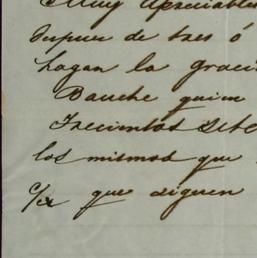 Muy Apreciables
Despues de tres ó
hagan la graci
Bauche quien
Trecientos sete
los mismos que
c/a que siguen